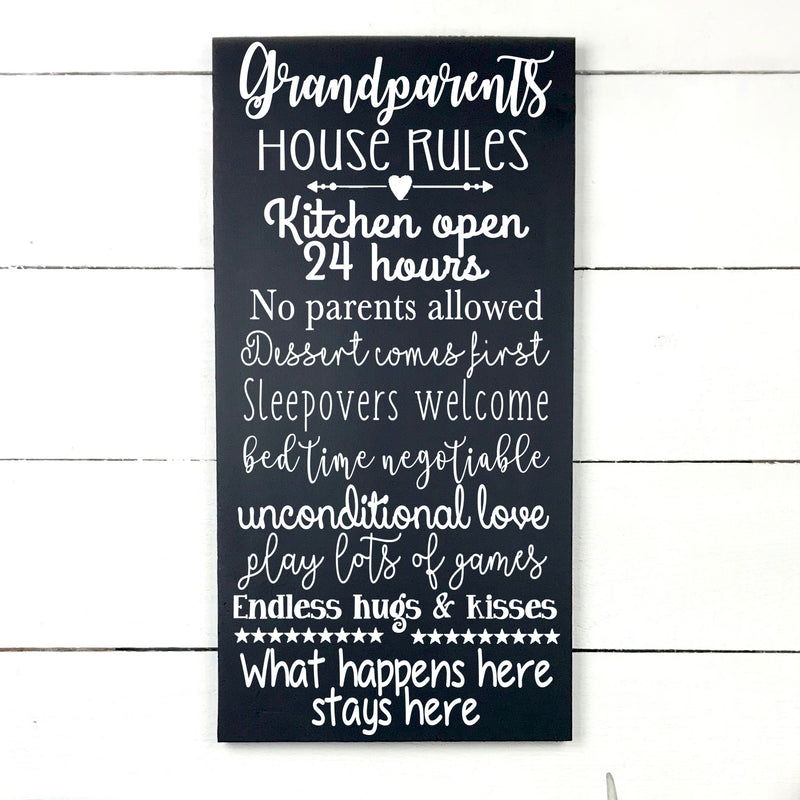 Grandparents
House Rules
Kitchen open
24 hours
No parents allowed
Dessert comes first
Sleepovers welcome
bedtime negotiable
unconditional love
play lots of games
Endless hugs & kisses
What happens here
stays here